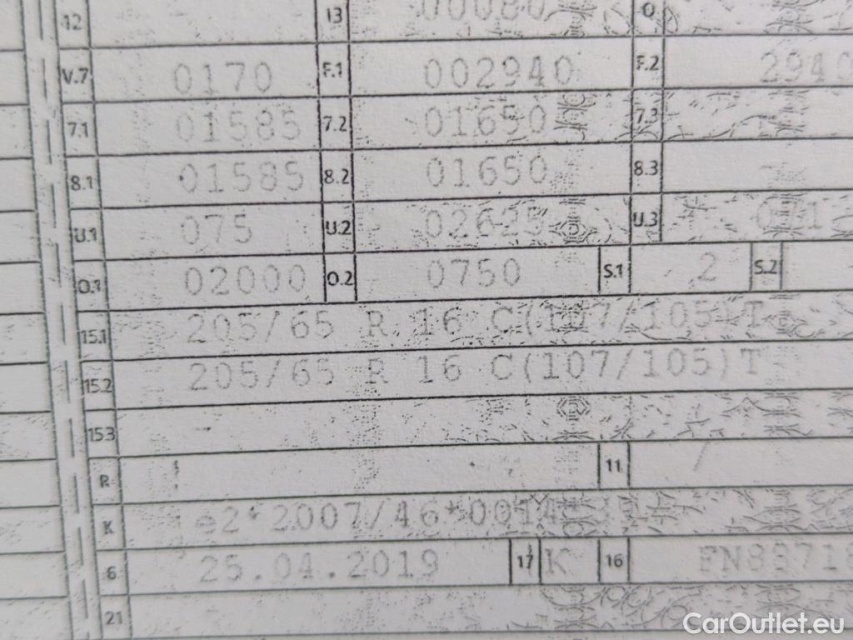 12 13 00080 O
V.7 0170 F.1 002940 F.2 2940
7.1 01585 7.2 01650 7.3
8.1 01585 8.2 01650 8.3
U.1 075 U.2 02625 U.3
O.1 02000 O.2 0750 S.1 2 S.2
15.1 205/65 R 16 C(107/105)T
15.2 205/65 R 16 C(107/105)T
15.3
R 11 /
K e2*2007/46*0014
6 25.04.2019 17 K 16 FN88718
21
CarOutlet.eu